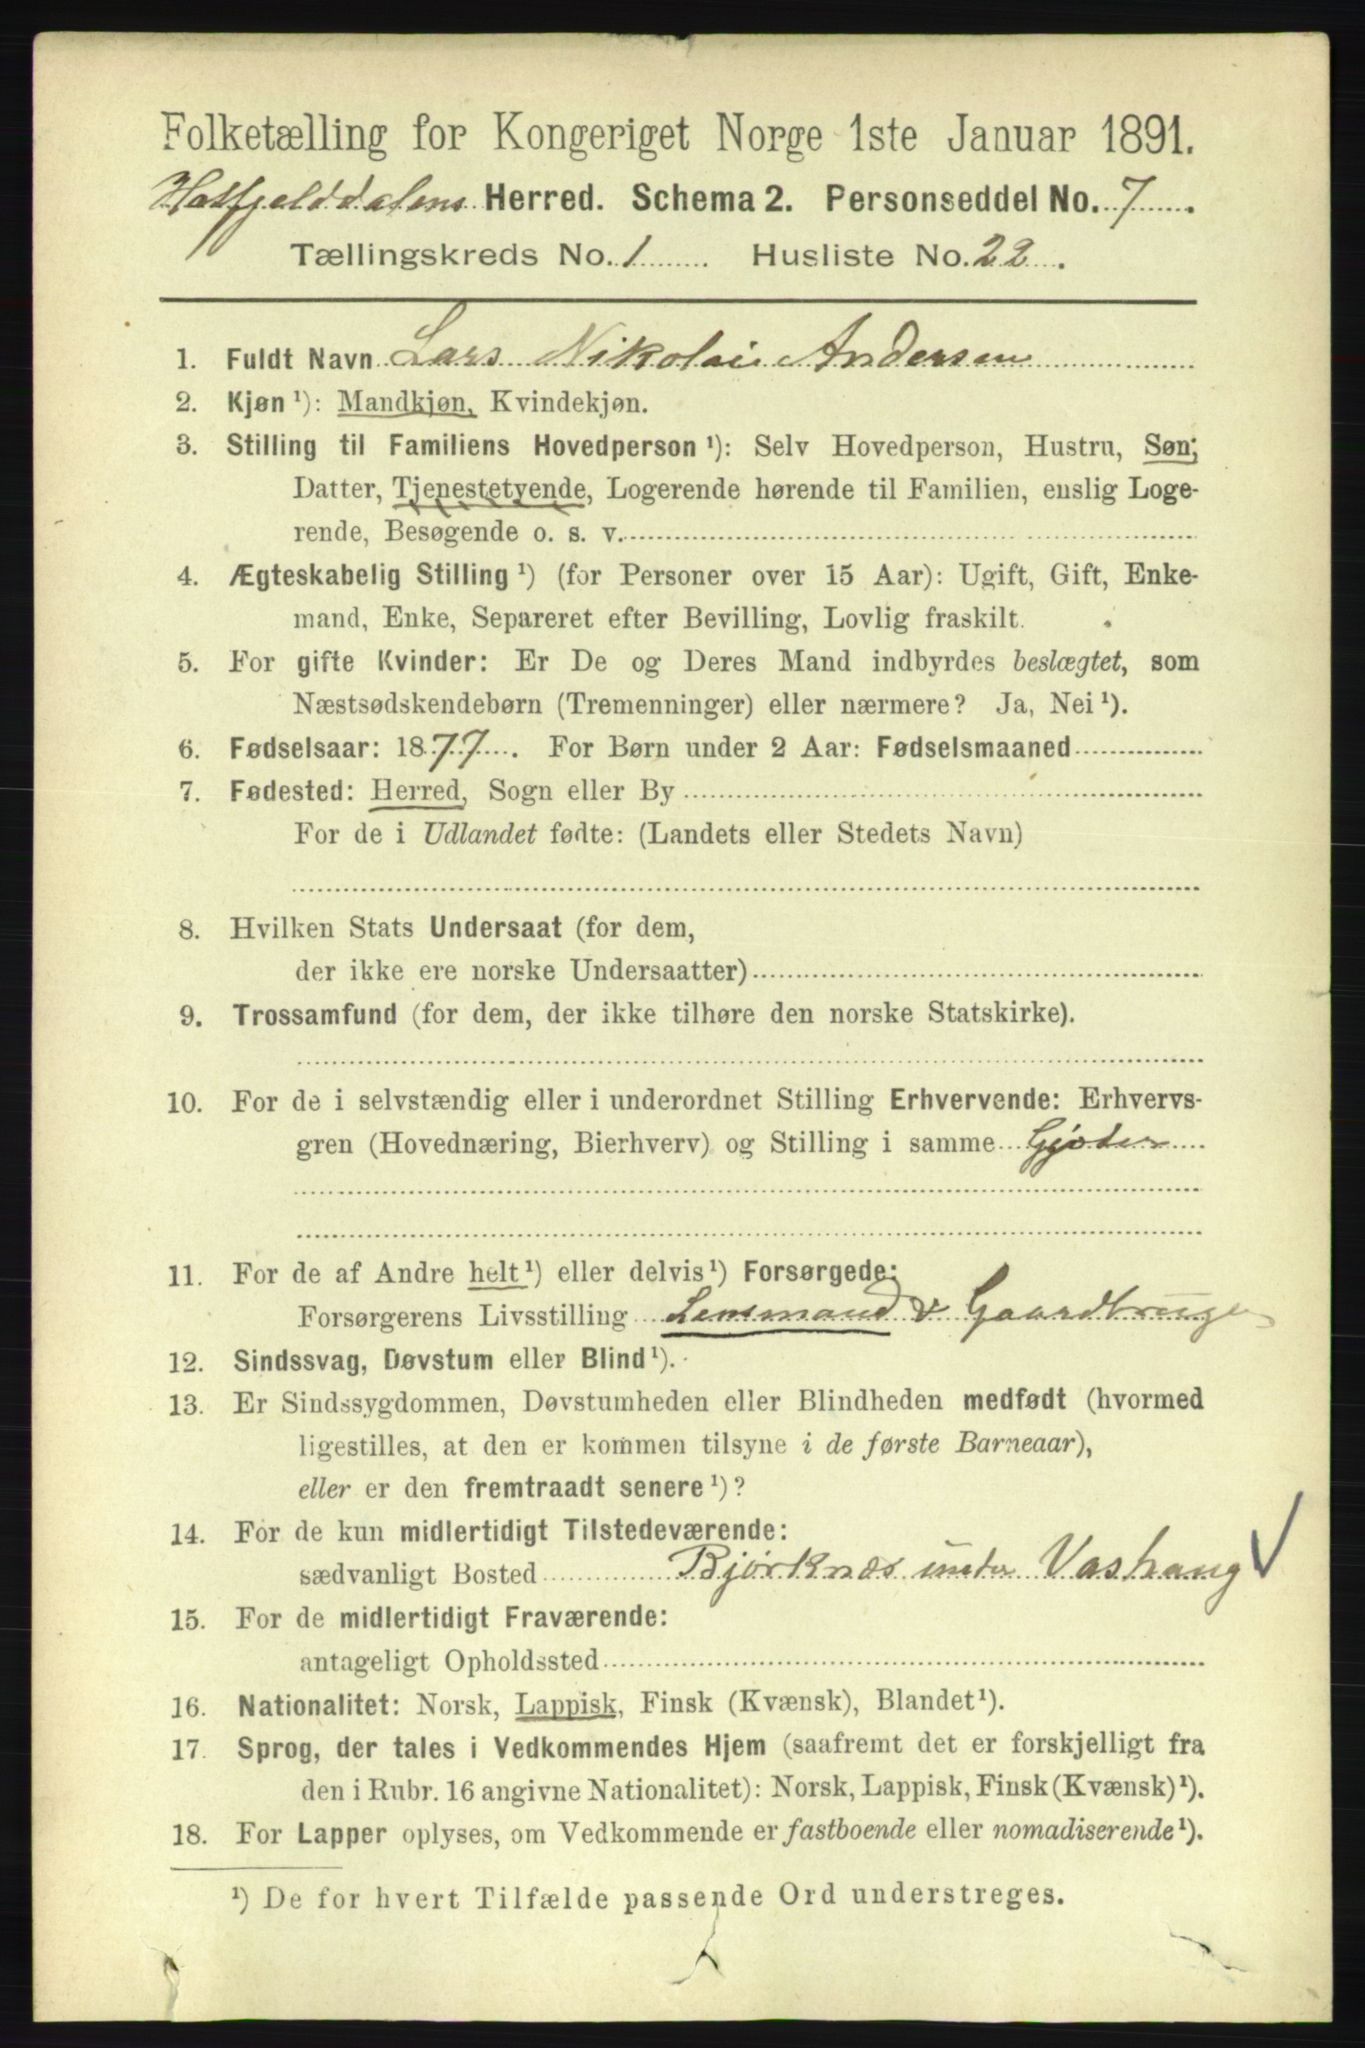 Folketælling for Kongeriget Norge 1ste Januar 1891.
Hatfjelddalens Herred. Schema 2. Personseddel No. 7
Tællingskreds No. 1 Husliste No. 22.
1. Fuldt Navn Lars Nikolai Andersen
2. Kjøn ¹): Mandkjøn, Kvindekjøn.
3. Stilling til Familiens Hovedperson ¹): Selv Hovedperson, Hustru, Søn,
Datter, Tjenestetyende, Logerende hørende til Familien, enslig Loge-
rende, Besøgende o. s. v.
4. Ægteskabelig Stilling ¹) (for Personer over 15 Aar): Ugift, Gift, Enke-
mand, Enke, Separeret efter Bevilling, Lovlig fraskilt.
5. For gifte Kvinder: Er De og Deres Mand indbyrdes beslægtet, som
Næstsødskendebørn (Tremenninger) eller nærmere? Ja, Nei ¹).
6. Fødselsaar: 1877. For Børn under 2 Aar: Fødselsmaaned
7. Fødested: Herred, Sogn eller By
For de i Udlandet fødte: (Landets eller Stedets Navn)
8. Hvilken Stats Undersaat (for dem,
der ikke ere norske Undersaatter)
9. Trossamfund (for dem, der ikke tilhøre den norske Statskirke).
10. For de i selvstændig eller i underordnet Stilling Erhvervende: Erhvervs-
gren (Hovednæring, Bierhverv) og Stilling i samme Gjæter
11. For de af Andre helt ¹) eller delvis ¹) Forsørgede:
Forsørgerens Livsstilling Lensmand & Gaardbruger
12. Sindssvag, Døvstum eller Blind ¹).
13. Er Sindssygdommen, Døvstumheden eller Blindheden medfødt (hvormed
ligestilles, at den er kommen tilsyne i de første Barneaar),
eller er den fremtraadt senere ¹)?
14. For de kun midlertidigt Tilstedeværende:
sædvanligt Bosted Bjørknæs under Vashaug
15. For de midlertidigt Fraværende:
antageligt Opholdssted
16. Nationalitet: Norsk, Lappisk, Finsk (Kvænsk), Blandet ¹).
17. Sprog, der tales i Vedkommendes Hjem (saafremt det er forskjelligt fra
den i Rubr. 16 angivne Nationalitet): Norsk, Lappisk, Finsk (Kvænsk) ¹).
18. For Lapper oplyses, om Vedkommende er fastboende eller nomadiserende ¹).
¹) De for hvert Tilfælde passende Ord understreges.